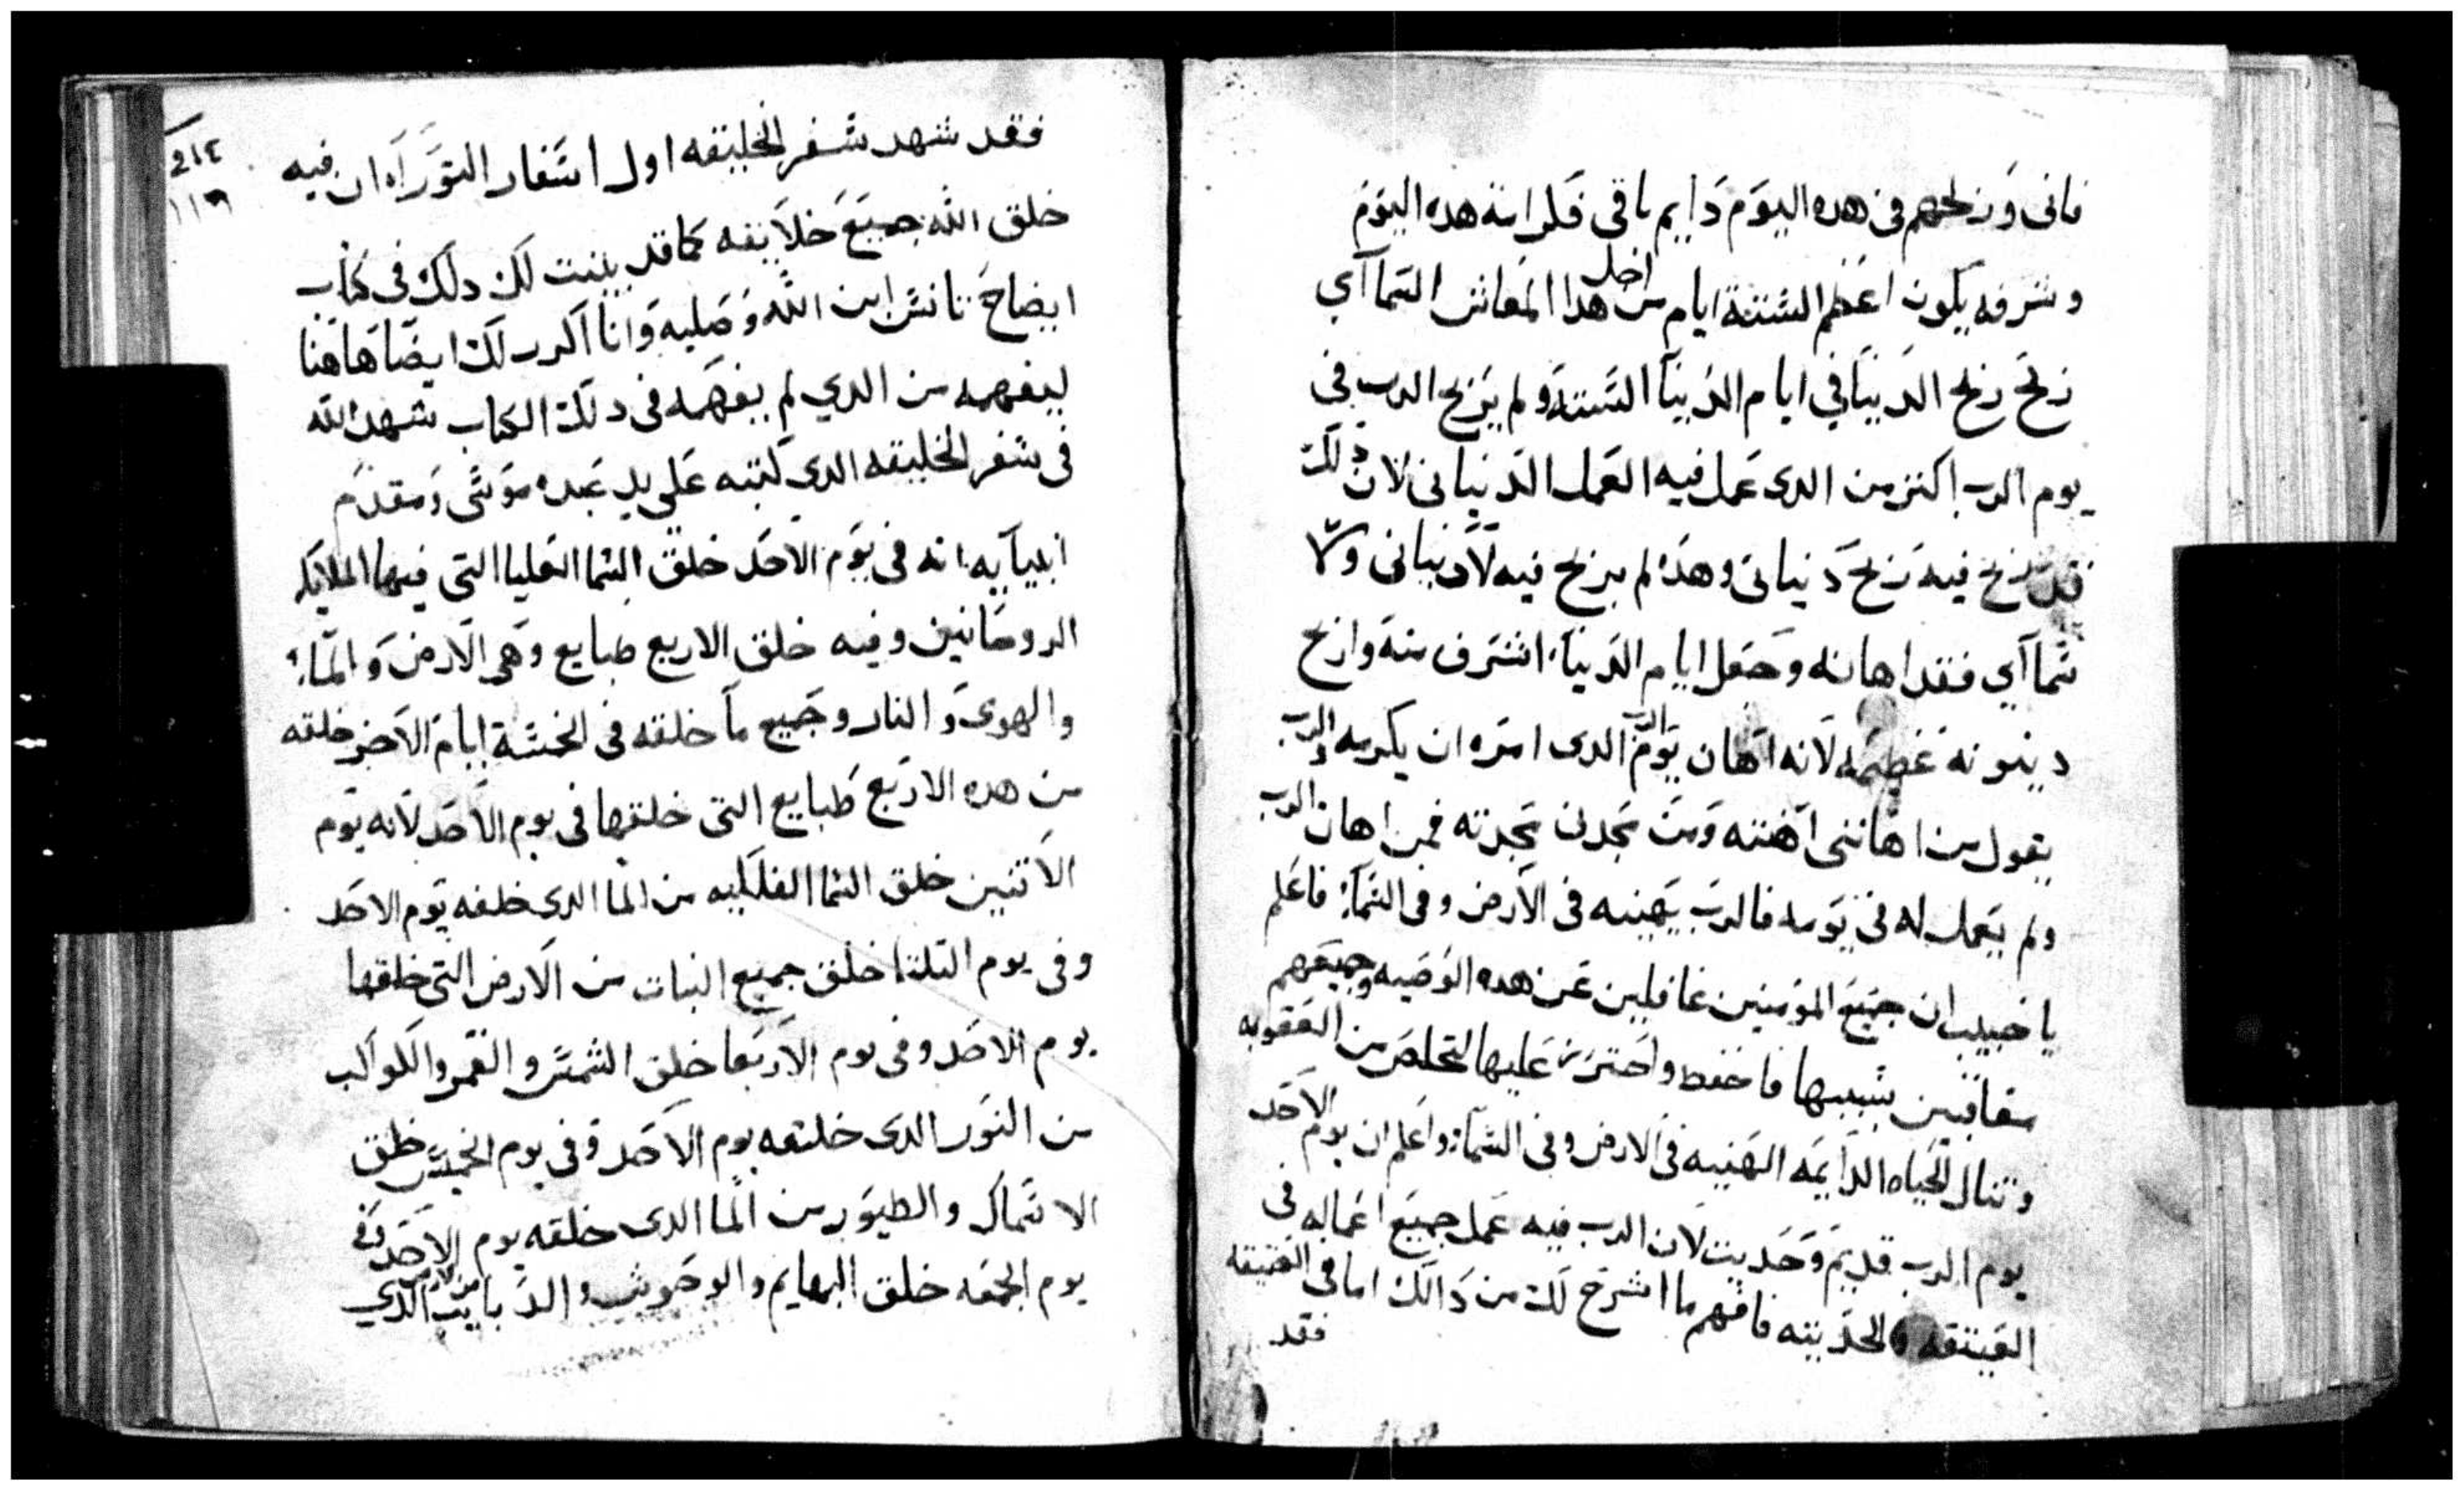 فانى وربحهم فى هده اليوم دايم باقى فكرامة هده اليوم
وشرفه يكون اعظم الستة ايام من اجل هدا المعاش السماآي
ربح ربح الدنيا في ايام الدنيآ الستة ولم يربح الرب في
يوم الرب اكتر من الدى عمل فيه العمل الدنيانى لان دلك
قد ربح فيه ربح دنيانى وهدا لم يربح فيه لا دنيانى ولا
سماآى فقد اهانه وجعل ايام الدنيآ اشرف منه وازح
دينونه عظيمه لانه اهان يوم الرب الدى امره ان يكرمه والرب
يقول من اهاننى اهنته ومن مجدنى مجدته فمن اهان الرب
ولم يعمل له فى يومه فالرب يهينه فى الارض وفى السمآ فاعلم
يا حبيب ان جميع المومنين غافلين عن هده الوصيه وجميعهم
معاقبين بسببها فاحفظ واحترز عليها لتخلص من العقوبه
وتنال الحياه الدايمه الهنيه فى الارض وفى السمآ واعلم ان يوم الاحد
يوم الرب قديم وحديت لان الرب فيه عمل جميع اعماله فى
العتيقه والحديته فافهم ما اشرح لك من دالك اما فى العتيقه
فقد
٢١٤
١١٦
فقد شهد سفر الخليقه اول اسفار التوراه ان فيه
خلق الله جميع خلايقه كما قد بينت لك دلك فى كتاب
ايضاح تانس ابن الله وصلبه وانا اكرر لك ايضا هاهنا
ليفهمه من الدي لم يفهمه فى دلك الكتاب شهد الله
فى سفر الخليقه الدى كتبه على يد عبده موسى ومقدم
انبيآيه انه فى يوم الاحد خلق السما العليا التى فيها الملايكه
الروحانيين وفيه خلق الاربع طبايع وهى الارض والمآ
والهوى والنار وجميع ما خلقه فى الخمسة ايام الاخر خلقه
من هده الاربع طبايع التى خلقها فى يوم الاحد لانه يوم
الاتنين خلق السما الفلكيه من الما الدى خلقه يوم الاحد
وفى يوم التلتا خلق جميع النبات من الارض التى خلقها
يوم الاحد وفى يوم الاربعا خلق الشمس والقمر والكواكب
من النور الدى خلقه يوم الاحد وفى يوم الخميس خلق
الاسماك والطيور من الما الدى خلقه يوم الاحد وفى
يوم الجمعه خلق البهايم والوحوش والدبابيب من الارض الدي